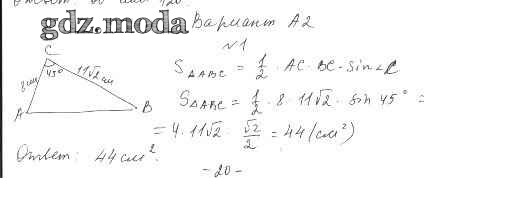 Ответ: 60 или 120.
gdz.moda Вариант А2
№1
C
45°
8 см
11√2 см
A
B
S△ABC = 1/2 · AC · BC · sin∠C
S△ABC = 1/2 · 8 · 11√2 · sin 45° =
= 4 · 11√2 · √2/2 = 44 (см²)
Ответ: 44 см².
-20-